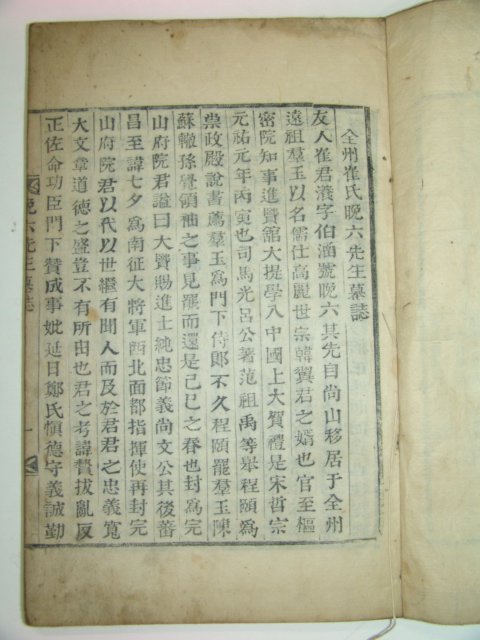 全州崔氏晩六先生墓誌
友人崔君瀁字伯涵號晩六其先自尙山移居于全州
遠祖羣玉以名儒仕高麗世宗韓翼君之婿也官至樞
密院知事進賢舘大提學入中國上大賀禮是宋哲宗
元祐元年丙寅也司馬光呂公著范祖禹等舉程頤爲
崇政殿說書薦羣玉爲門下侍郞不久程頤罷羣玉陳
蘇轍孫覺領袖之事見罷而還是己巳之春也封爲完
山府院君諡曰大賢賜進士純忠節義尙文公其後蕃
昌至諱七夕爲南征大將軍西北面都指揮使再封完
山府院君以代以世繼有聞人而及於君君之忠義寬
大文章道德之盛豈不有所出也君之考諱贇拔亂反
正佐命功臣門下贊成事妣延日鄭氏愼德守義誠勤
晩六先生墓誌
一